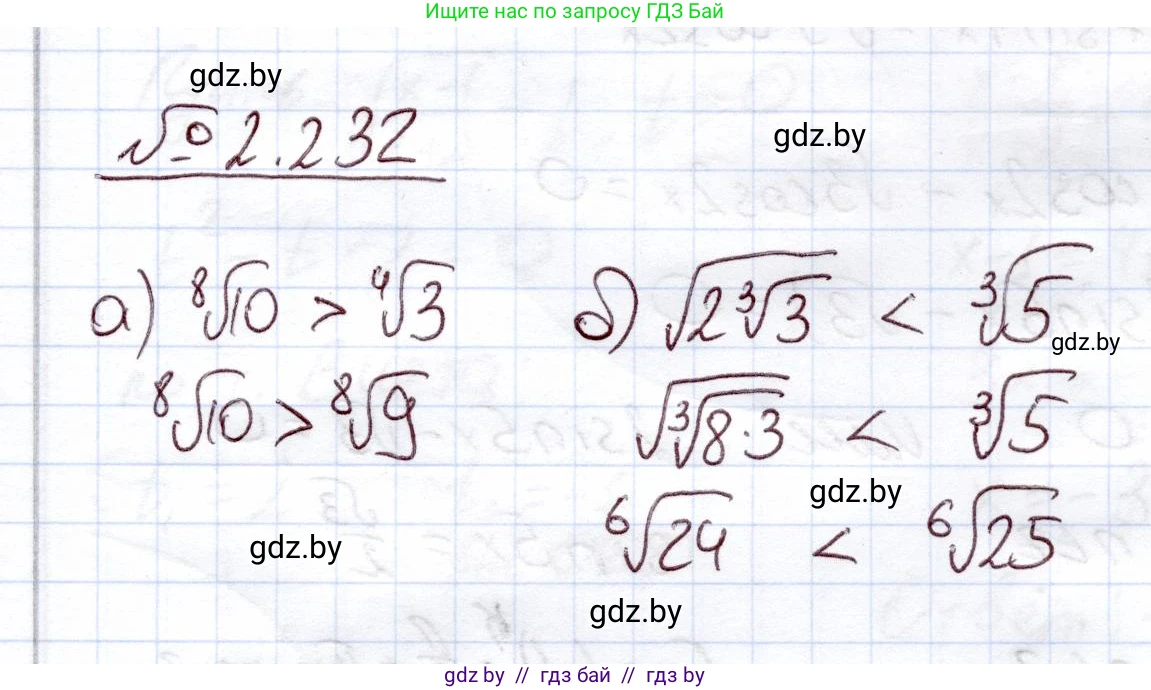 Ищите нас по запросу ГДЗ Бай
gdz.by
№ 2.232
gdz.by
а) ⁸√10 > ⁴√3
⁸√10 > ⁸√9
б) √(2∛3) < ∛5
gdz.by
√(∛(8·3)) < ∛5
gdz.by
⁶√24 < ⁶√25
gdz.by
gdz.by
gdz by // гдз бай // gdz by